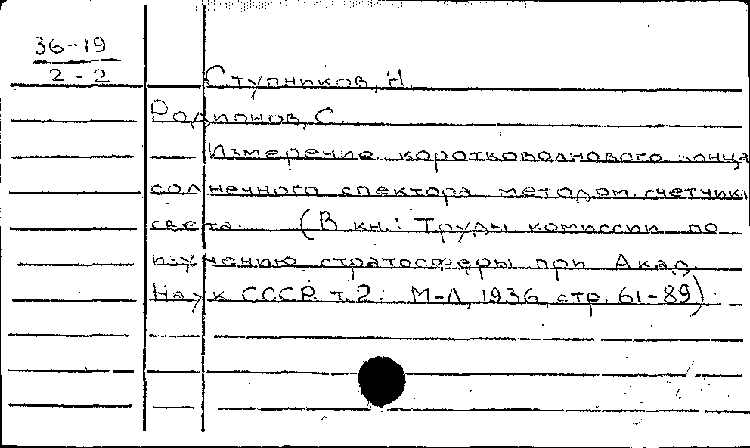 36-19
2-2
Ступников, Н.
Родионов, С.
Измерение коротковолнового конца
солнечного спектра методом счетчика
света. (В кн.: Труды комиссии по
изучению стратосферы при Акад.
Наук СССР. т. 2. М-Л, 1936, стр. 61-89).